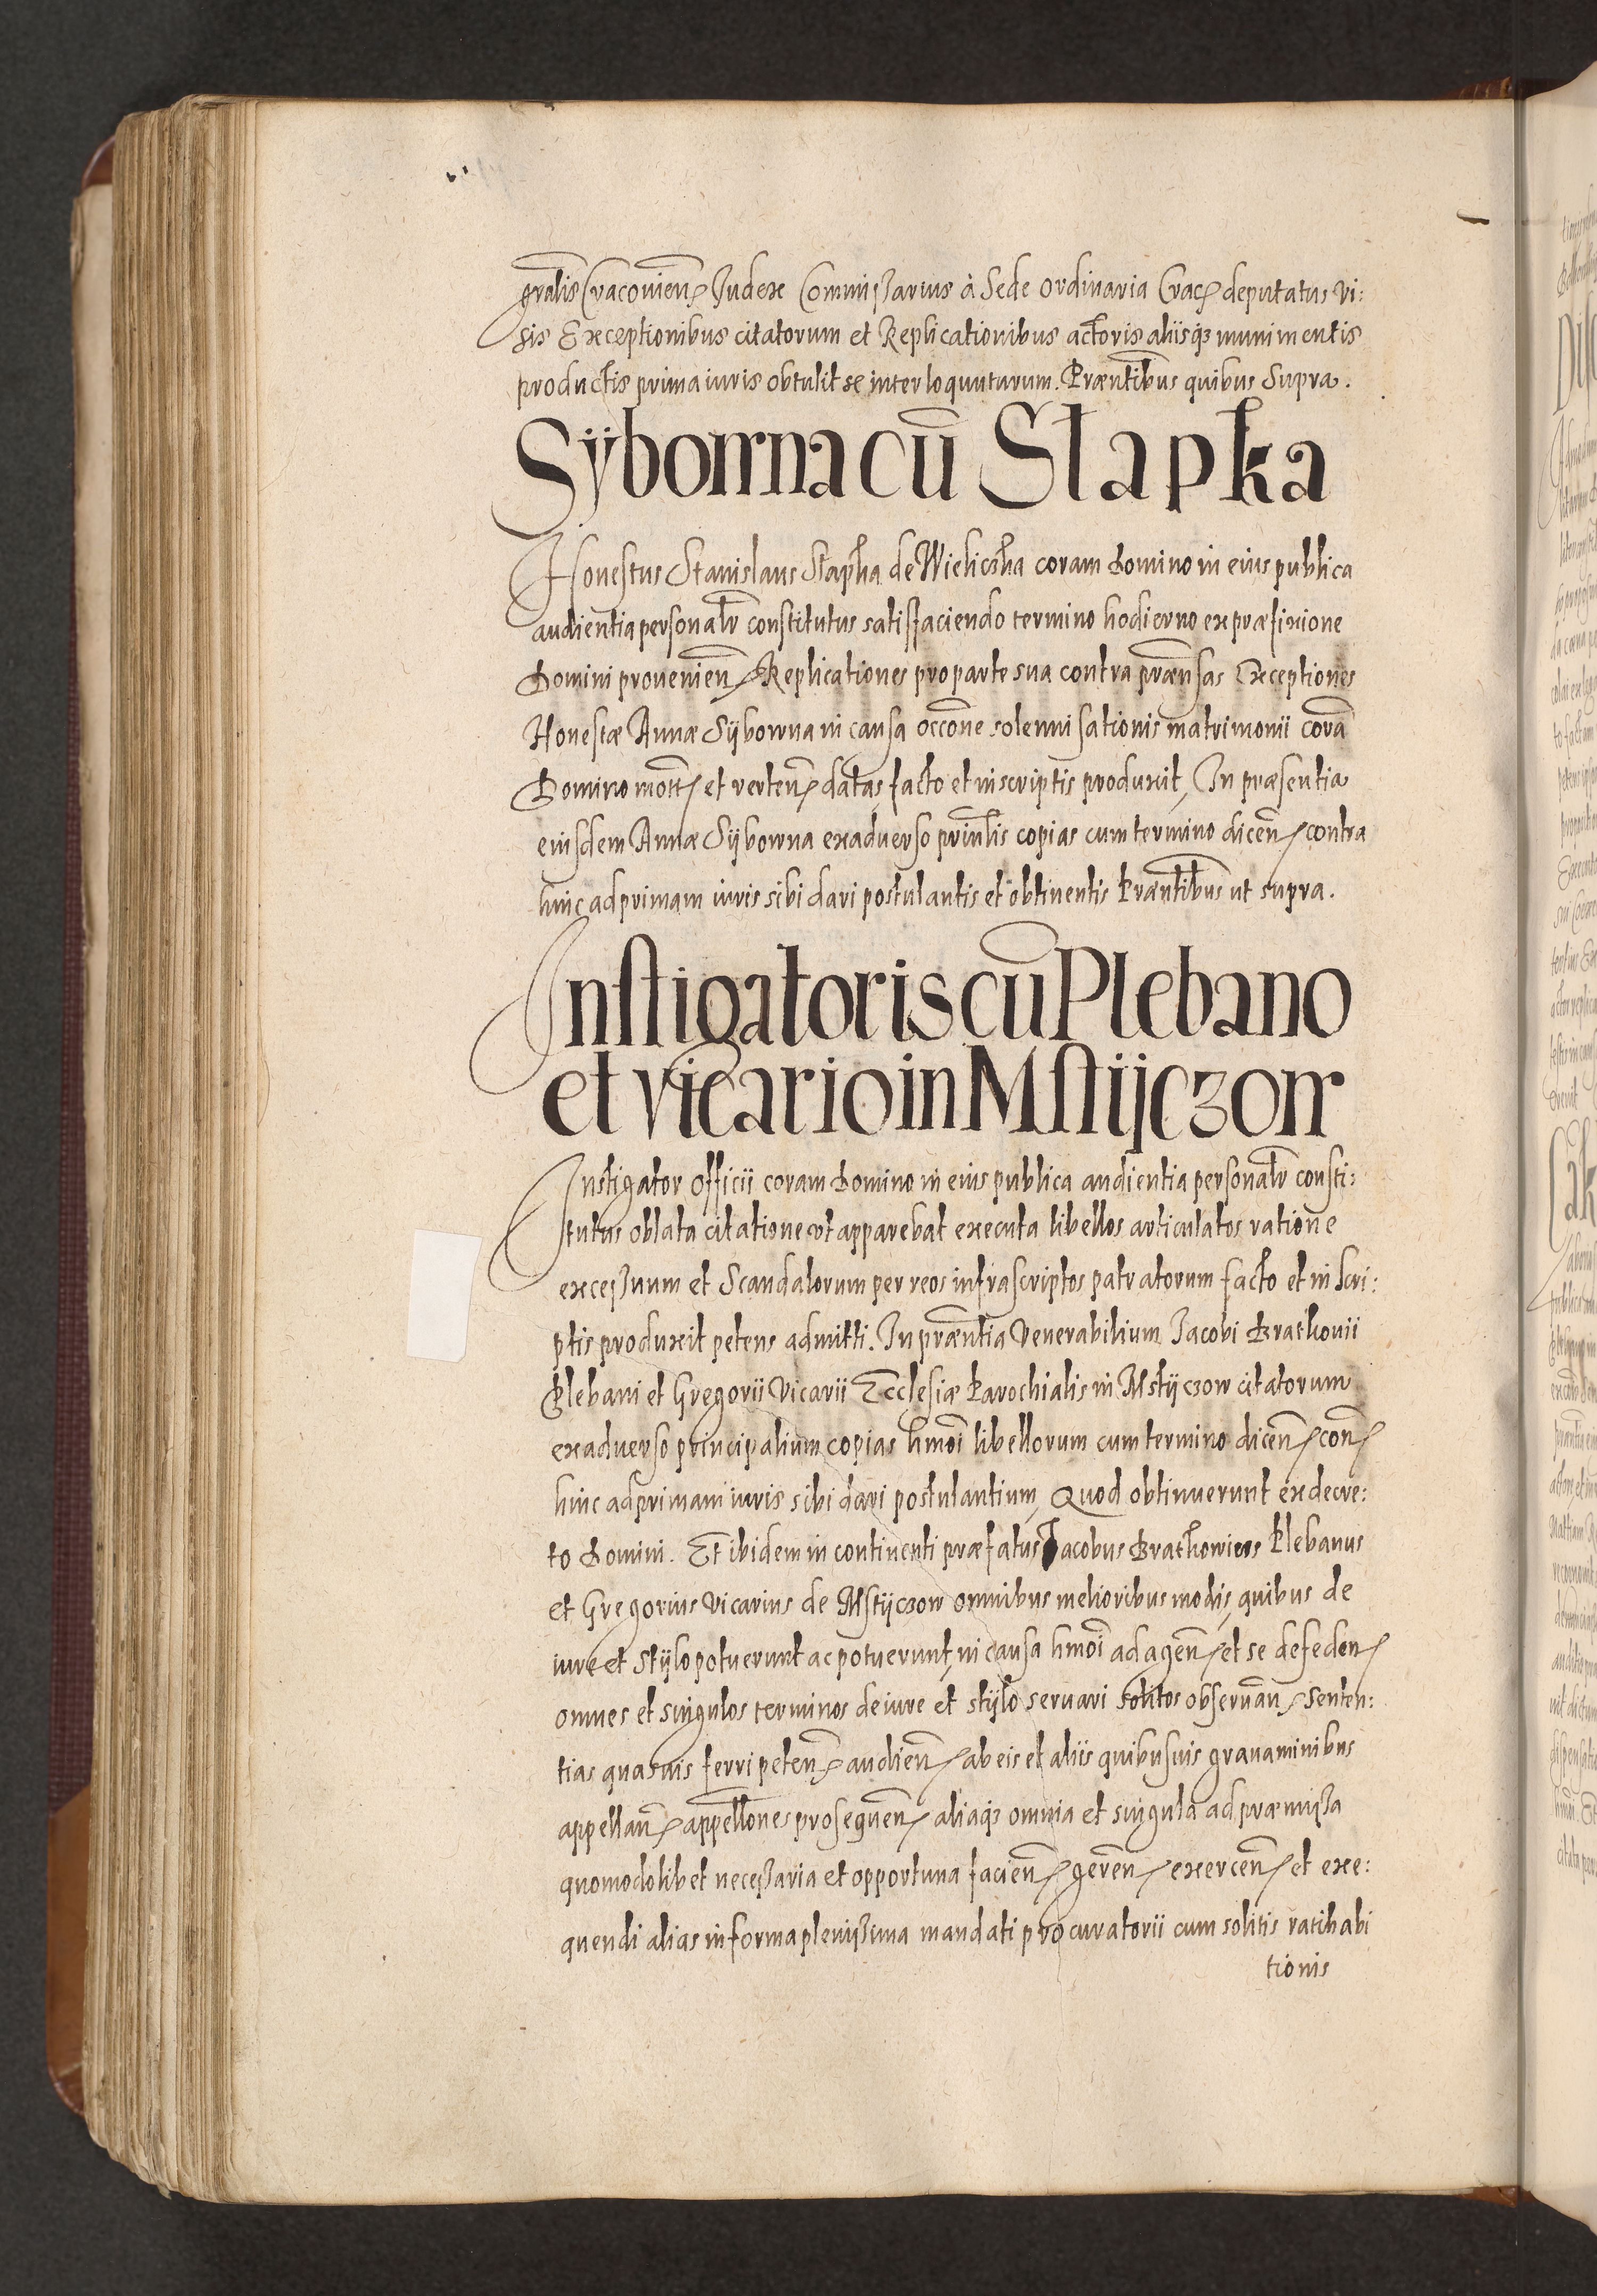 gralis Cracouien Judex Commissarius à Sede Ordinaria Crac deputatus Vi:
sis Exceptionibus citatorum et Replicationibus actoris aliisq3 munimentis
productis prima iuris obtulit se interloquuturum. Præntibus quibus Supra.
Sÿbowna cū Stapka
Honestus Stanislaus Stapka de Wieliczka coram Domino in eius publica
audientia personalr constitutus satisfaciendo termino hodierno ex præfixione
Domini prouenien Replicationes pro parte sua contra prænsas Exceptiones
Honestæ Annæ Sÿbowna in causa occōne solennisationis matrimonii corā
Domino mott et verten datas, facto et in scriptis produxit, In præsentia
eiusdem Annæ Sÿbowna ex aduerso prinlis copias cum termino dicen contra
hinc ad primam iuris sibi dari postulantis et obtinentis Præntibus ut supra.
Instigatoris cū Plebano
et vicario in Mstijczow
Instigator Officii coram Domino in eius publica audientia personalr consti:
tutus oblata citatione vt apparebat executa libellos articulatos ratione
excessuum et Scandalorum per reos infrascriptos patratorum facto et in scri:
ptis produxit petens admitti. In præntia Venerabilium Jacobi Brathouii
Plebani et Gregorii Vicarii Ecclesiæ Parochialis in Mstijczow citatorum
ex aduerso principalium copias hmōi libellorum cum termino dicen con
hinc ad primam iuris sibi dari postulantium, Quod obtinuerunt ex decre:
to Domini. Et ibidem in continenti præfatus Jacobus Plebanus
et Gregorius Vicarius de Mstijczow omnibus melioribus modis, quibus de
iure et Stÿlo potuerunt ac potuerunt, in causa hmōi ad agen et se defeden
omnes et singulos terminos de iure et stÿlo seruari solitos obseruan Senten:
tias quasuis ferri peten audien ab eis et aliis quibusuis grauaminibus
appellan appellōnes prosequen aliaq3 omnia et singula ad præmissa
quomodolibet necessaria et opportuna facien geren exercen et exe:
quendi alias in forma plenissima mandati procuratorii cum solitis ratihabi
tionis